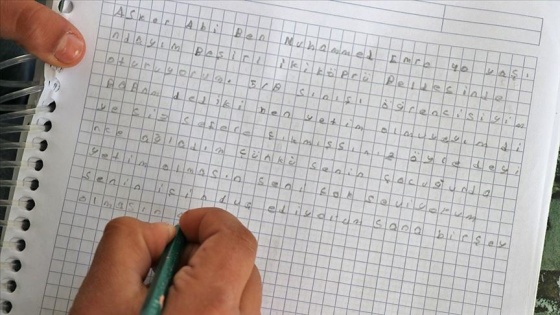 Asker Abi Ben Muhammed Emre 10 yaşı
ndayım Besiri ikiköprü Beldesinde
oturuyorum. 3/A sınıfı öğrencisiyim
Babam dediki ben yetim olmuyayım di
ye siz sefere çıkmışsınız öyle deyi
nce ağladım çünkü senin çocuğunda
yetim olmasın seni çok seviyorum
senin için dua ediyorum sana birşey
olmasın